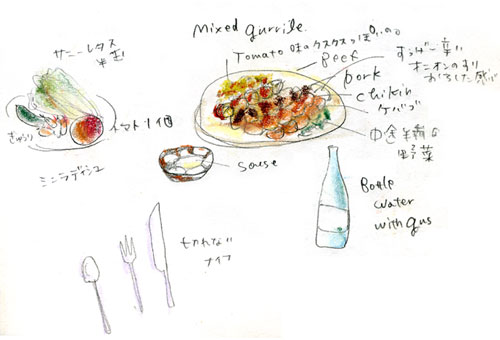 サニーレタス
半玉
きゅうり
トマト1個
ミニラディシュ
Mixed gurrile.
Tomato味のクスクスっぽいの
Beef
pork
chikin
ケバブ
すっぱ辛い
オニオンのすり
おろした感じ
野菜
souse
Bottle
water
with gus
切れない
ナイフ